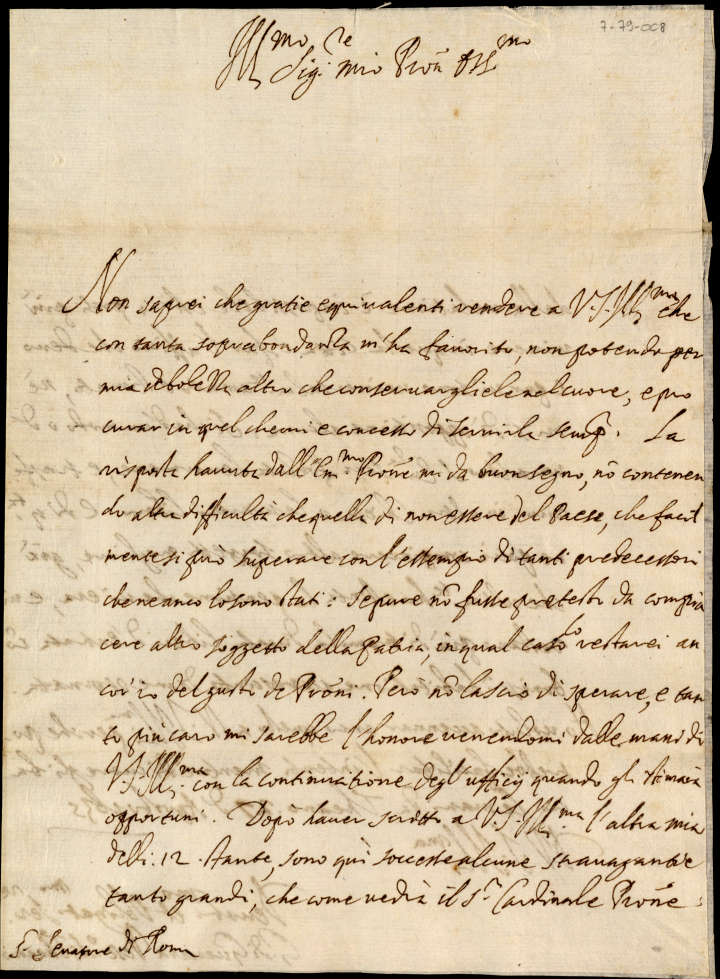 7-79-008
Ill.mo Sig.re mio Pron Oss.mo
Non saprei che gratie equivalenti rendere a V.S. Ill.ma che
con tanta soprabondanza m'ha favorito, non potendo per
mia debolezza altro che conservargliele nel cuore, e pro
curar in quel che mi e concesso di servirla semp. La
risposta havuta dall'Em.mo Prone mi da buon segno, nõ contenen
do altra difficultà che quella di non essere del Paese, che facil
mente si può superare con l'essempio di tanti predecessori
che ne anco lo sono stati: se pure nõ fusse pretesto da compia
cere altro soggetto della Patria, in qual caso restarei an
cor' io del gusto de Proni. Pero nõ lascio di sperare, e tan
to piu caro mi sarebbe l'honore venendomi dalle mani di
V.S. Ill.ma con la continuatione degl'ufficij quando gli stimarà
opportuni. Dopò haver scritto a V.S. Ill.ma l'altra mia
delli 12 stante, sono quì successe alcune stravaganze
tanto grandi, che come vedrà il S.r Cardinale Prone
S.r Senatore di Roma